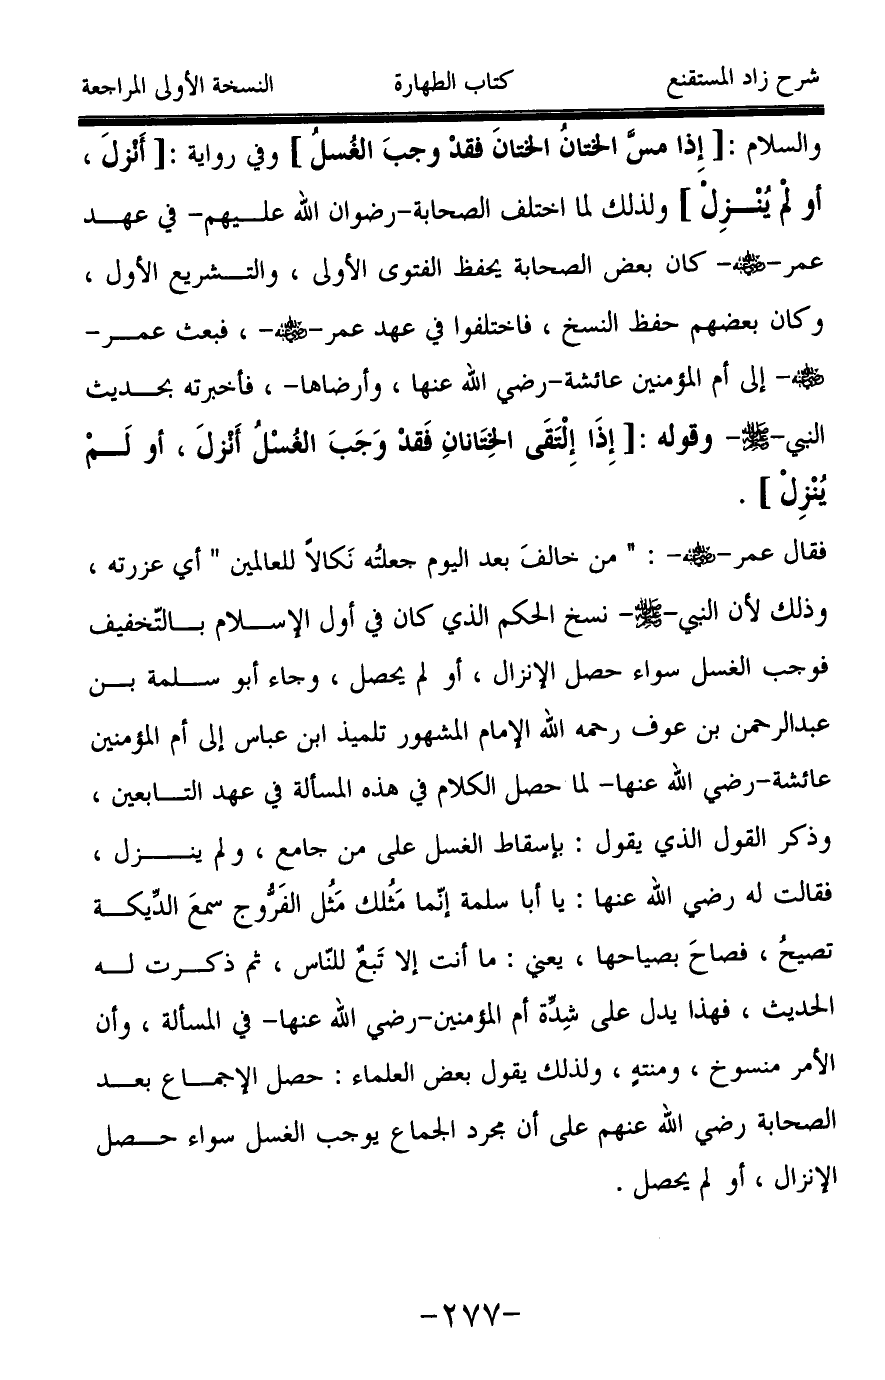 شرح زاد المستقنع كتاب الطهارة النسخة الأولى المراجعة
والسلام :[ إِذا مسَّ الختانُ الختانَ فقدْ وجبَ الغُسلُ ] وفي رواية :[ أَنْزلَ ،
أو لمْ يُنْـزِلْ ] ولذلك لما اختلف الصحابة-رضوان الله عليهم- في عهد
عمر-رضي الله عنه- كان بعض الصحابة يحفظ الفتوى الأولى ، والتشريع الأول ،
وكان بعضهم حفظ النسخ ، فاختلفوا في عهد عمر-رضي الله عنه- ، فبعث عمر-
رضي الله عنه- إلى أم المؤمنين عائشة-رضي الله عنها ، وأرضاها- ، فأخبرته بحديث
النبي-ﷺ- وقوله :[ إِذَا اِلْتَقَى الخِتَانانِ فَقدْ وَجَبَ الغُسْلُ أَنْزلَ ، أو لَـمْ
يُنْزِلْ ] .
فقال عمر-رضي الله عنه- : " من خالفَ بعد اليوم جعلتُه نَكالاً للعالمين " أي عزرته ،
وذلك لأن النبي-ﷺ- نسخ الحكم الذي كان في أول الإسلام بالتّخفيف
فوجب الغسل سواء حصل الإنزال ، أو لم يحصل ، وجاء أبو سلمة بن
عبدالرحمن بن عوف رحمه الله الإمام المشهور تلميذ ابن عباس إلى أم المؤمنين
عائشة-رضي الله عنها- لما حصل الكلام في هذه المسألة في عهد التابعين ،
وذكر القول الذي يقول : بإسقاط الغسل على من جامع ، ولم ينـزل ،
فقالت له رضي الله عنها : يا أبا سلمة إنّما مَثُلك مَثُل الفَرُّوج سمعَ الدِّيكة
تصيحُ ، فصاحَ بصياحها ، يعني : ما أنت إلا تَبعٌ للنّاس ، ثم ذكرت له
الحديث ، فهذا يدل على شِدِّة أم المؤمنين-رضي الله عنها- في المسألة ، وأن
الأمر منسوخ ، ومنتهٍ ، ولذلك يقول بعض العلماء : حصل الإجماع بعد
الصحابة رضي الله عنهم على أن مجرد الجماع يوجب الغسل سواء حصل
الإنزال ، أو لم يحصل .
-٢٧٧-